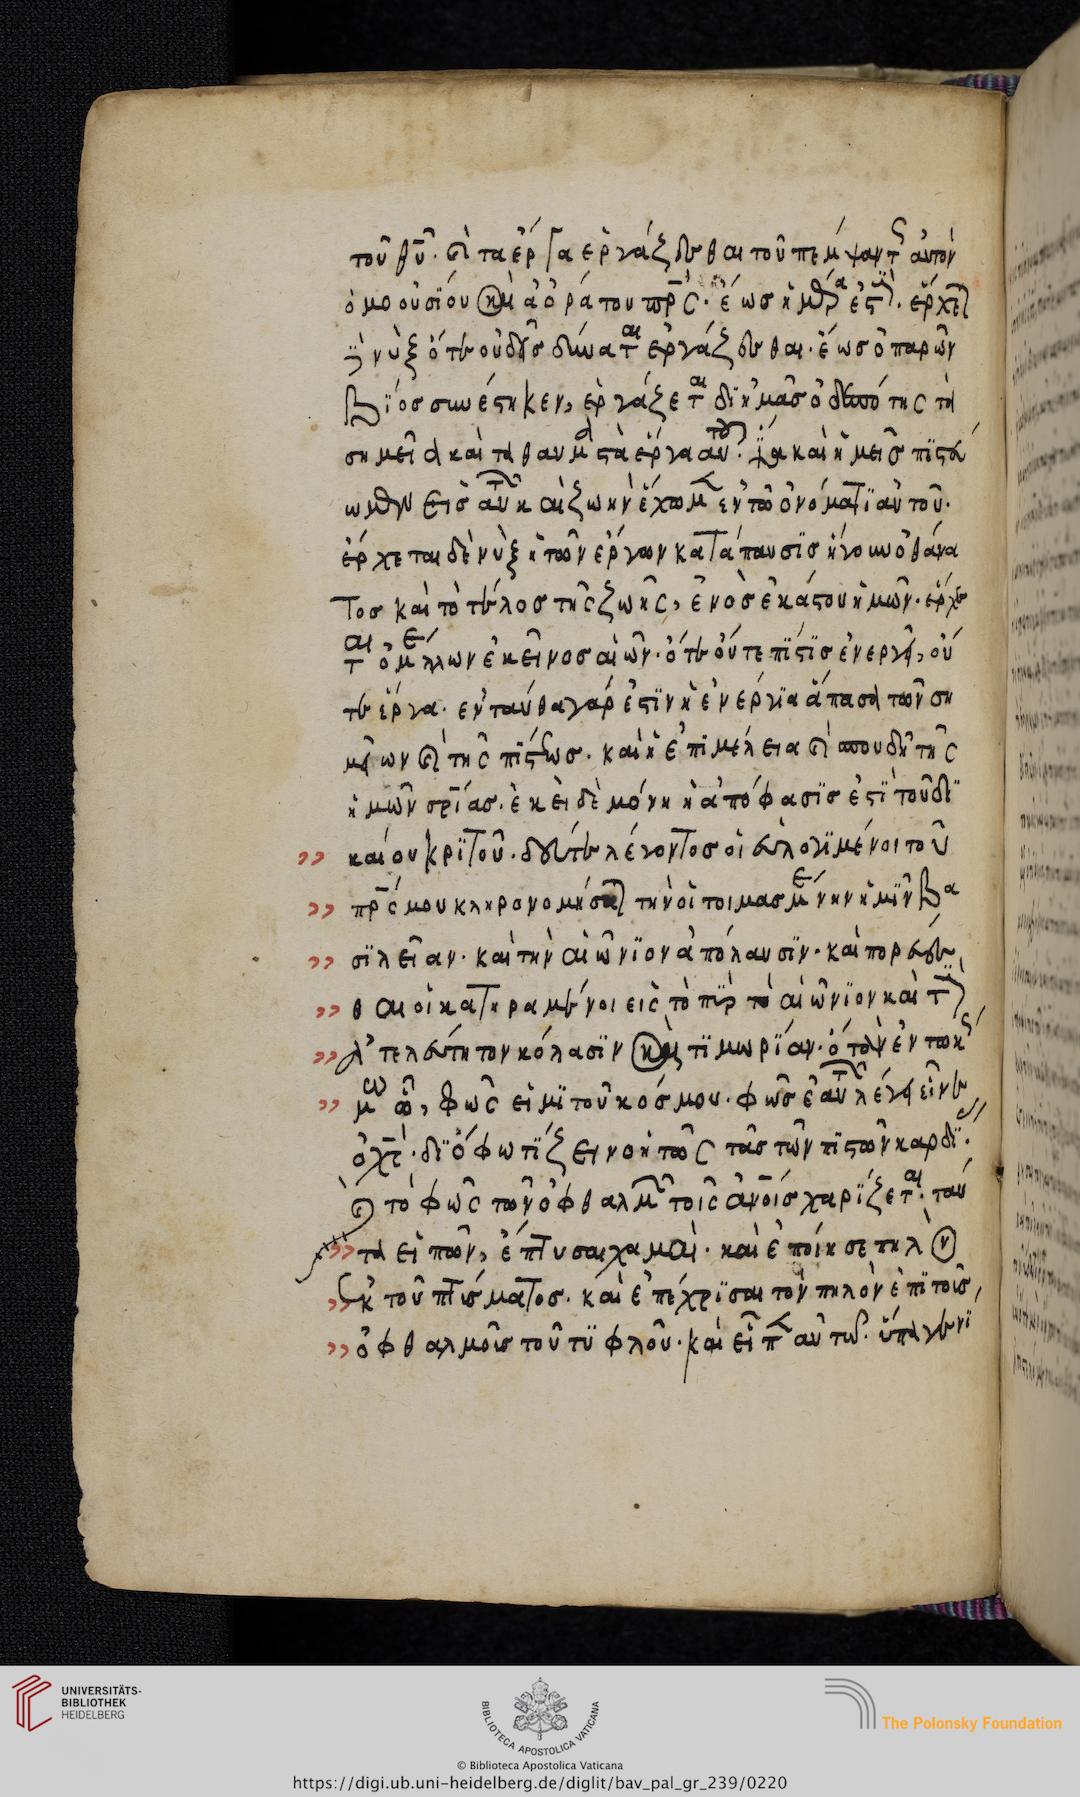 τοῦ θυ̅· καὶ τὰ ἔργα ἐργάζεσθαι τοῦ πέμψαντος αὐτὸν
ὁμοουσίου καὶ ἀοράτου πρ̅ς· ἕως ἡμέρα ἐστίν· ἔρχεται
νὺξ ὅτε οὐδεὶς δύναται ἐργάζεσθαι· ἕως ὁ παρὼν
βίος συνέστηκεν, ἐργάζεται δι ἡμᾶς ὁ δεσπότης τὰ
σημεῖα καὶ τὰ θαυμαστὰ ἔργα αὐτοῦ· ἵνα καὶ ἡμεῖς πιστεύ
ωμεν εἰς αὐτὸν καὶ ζωὴν ἔχωμεν ἐν τῶ ὀνόματι αὐτοῦ·
ἔρχεται δὲ νὺξ ἡ τῶν ἔργων κατάπαυσις ἤγουν ὁ θάνα
τος καὶ τὸ τέλος τῆς ζωῆς, ἑνὸς ἑκάστου ἡμῶν· ἔρχε
ται, ὁ μέλλων ἐκεῖνος αἰών· ὅτε οὔτε πίστις ἐνεργεῖ, οὔ
τε ἔργα· ἐνταῦθα γάρ ἐστιν ἡ ἐνέργεια ἅπασα τῶν ση
μείων καὶ τῆς πίστεως· καὶ ἡ ἐπιμέλεια καὶ σπουδὴ τῆς
ἡμῶν σρ̅ίας· ἐκεῖ δὲ μόνη ἡ ἀπόφασις ἐστὶ τοῦ δι
καίου κριτοῦ· δεῦτε λέγοντος οἱ εὐλογημένοι τοῦ
πρ̅ς μου κληρονομήσατε τὴν ἡτοιμασμένην ἡμῖν βα
σιλείαν· καὶ τὴν αἰώνιον ἀπόλαυσιν· καὶ πορεύε
σθαι οἱ κατηραμένοι εἰς τὸ πῦρ τὸ αἰώνιον καὶ τὴν
ἀτελεύτητον κόλασιν καὶ τιμωρίαν· ὅταν ἐν τῶ κό
σμω ὦ, φῶς εἰμὶ τοῦ κόσμου· φῶς ἑαυτὸν λέγει εἶναι
ὁ χς̅· διό φωτίζει νοητῶς τὰς τῶν πιστῶν καρδίας·
καὶ τὸ φῶς τῶν ὀφθαλμῶν τοῖς ἀνοις χαρίζεται· ταῦ
τα εἰπών, ἔπτυσαι χαμαί· καὶ ἐποίησε πηλὸν
ἐκ τοῦ πτύσματος· καὶ ἐπέχρισαι τὸν πηλὸν ἐπὶ τοῖς
ὀφθαλμοῖς τοῦ τυφλοῦ· καὶ εἶπεν αὐτῶ· ὕπαγε νί
UNIVERSITÄTS-
BIBLIOTHEK
HEIDELBERG
BIBLIOTECA APOSTOLICA VATICANA
The Polonsky Foundation
© Biblioteca Apostolica Vaticana
https://digi.ub.uni-heidelberg.de/diglit/bav_pal_gr_239/0220